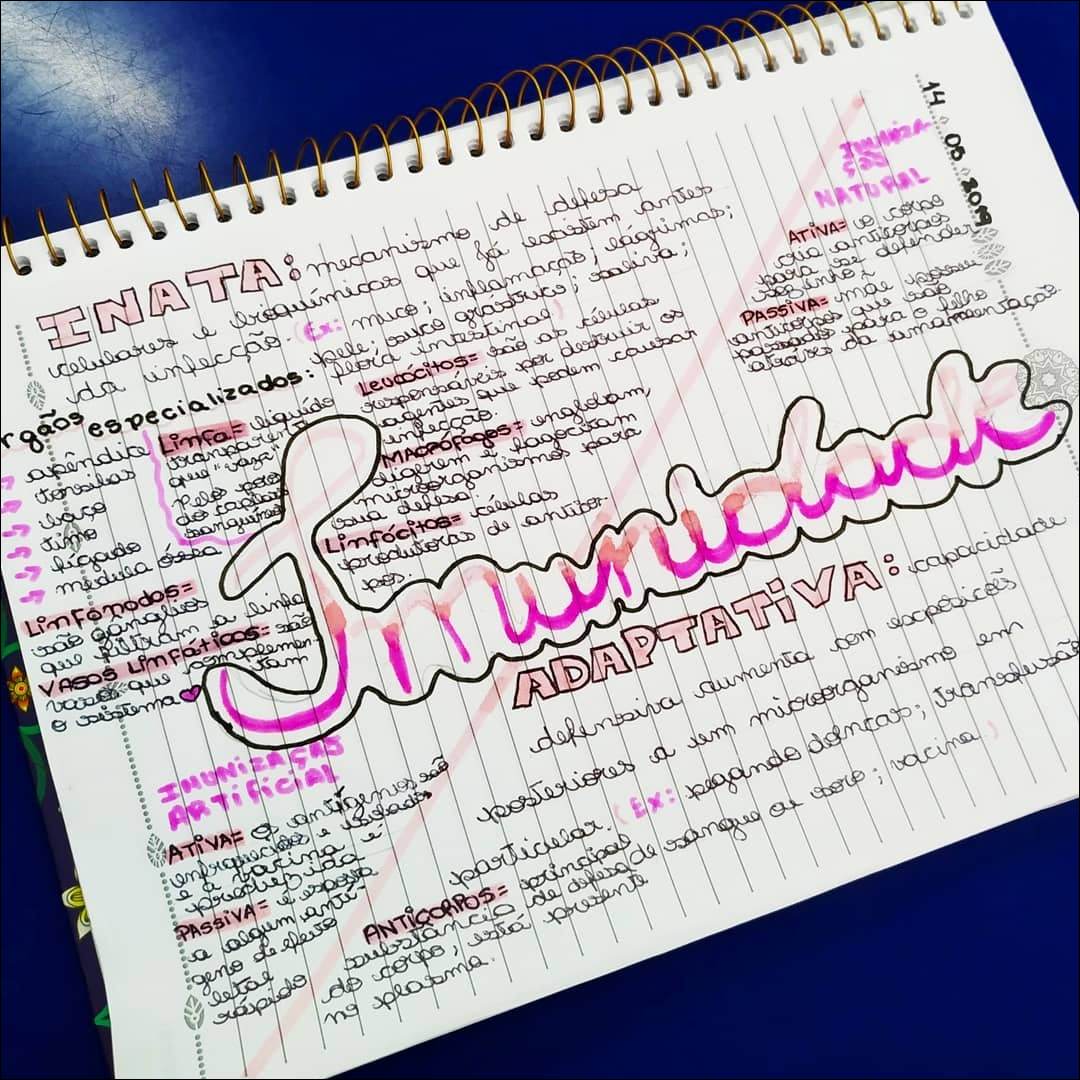 14 05 2019
INATA: mecanismo de defesa
celulares e bioquímicos que já existem antes
da infecção. (Ex: muco; inflamação; lágrimas;
pele; suco gástrico; saliva;
flora intestinal)
rgãos especializados:
apêndite
tonsilas
baço
timo
fígado
medula óssea
Limfa= líquido
transparente
que "vaza"
pelos poros
dos capilares
sanguíneos
LINFÓNODOS=
são gânglios
que filtram a linfa
VASOS LINFÁTICOS= são
vasos que complemen
tam
o sistema
LEUCÓCITOS= são as células
responsáveis por destruir os
agentes que podem causar
infecção.
MACRÓFAGOS= englobam,
digerem e fagocitam
microrganismos para
sua defesa
LINFÓCITOS= células
produtoras de anticor-
pos.
IMUNIZA-
ÇÃO
NATURAL
ATIVA= o corpo
cria anticorpos
para se defender
sozinho
PASSIVA= mãe possui
anticorpos que são
passados para o filho
através da amamentação.
Imunidade
ADAPTATIVA: capacidade
defensiva aumenta com exposicões
posteriores a um microorganismo em
particular. (Ex: pegando doenças; transfusão
de sangue ou soro; vacina)
ANTICORPOS= principais
substância de defesa
do corpo; está presente
no plasma.
IMUNIZAÇÃO
ARTIFICIAL
ATIVA= os antígenos são
enfraquecidos e isolados
e a vacina é
produzida
PASSIVA= é exposta
a algum antí
geno de efeito
letal
rápido